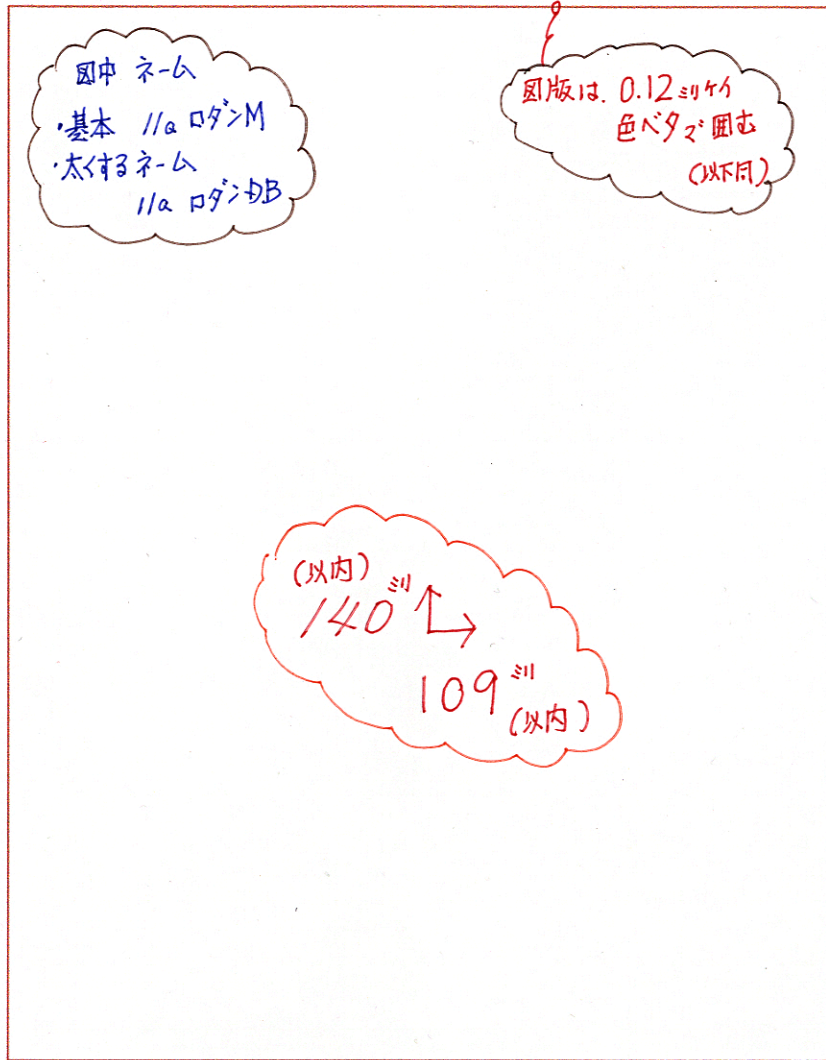 図中 ネーム
・基本 11Q ロダンM
・太くするネーム
11Q ロダンDB
図版は、0.12ミリケイ
色ベタで囲む
(以下同)
(以内)
140ミリ
109ミリ
(以内)